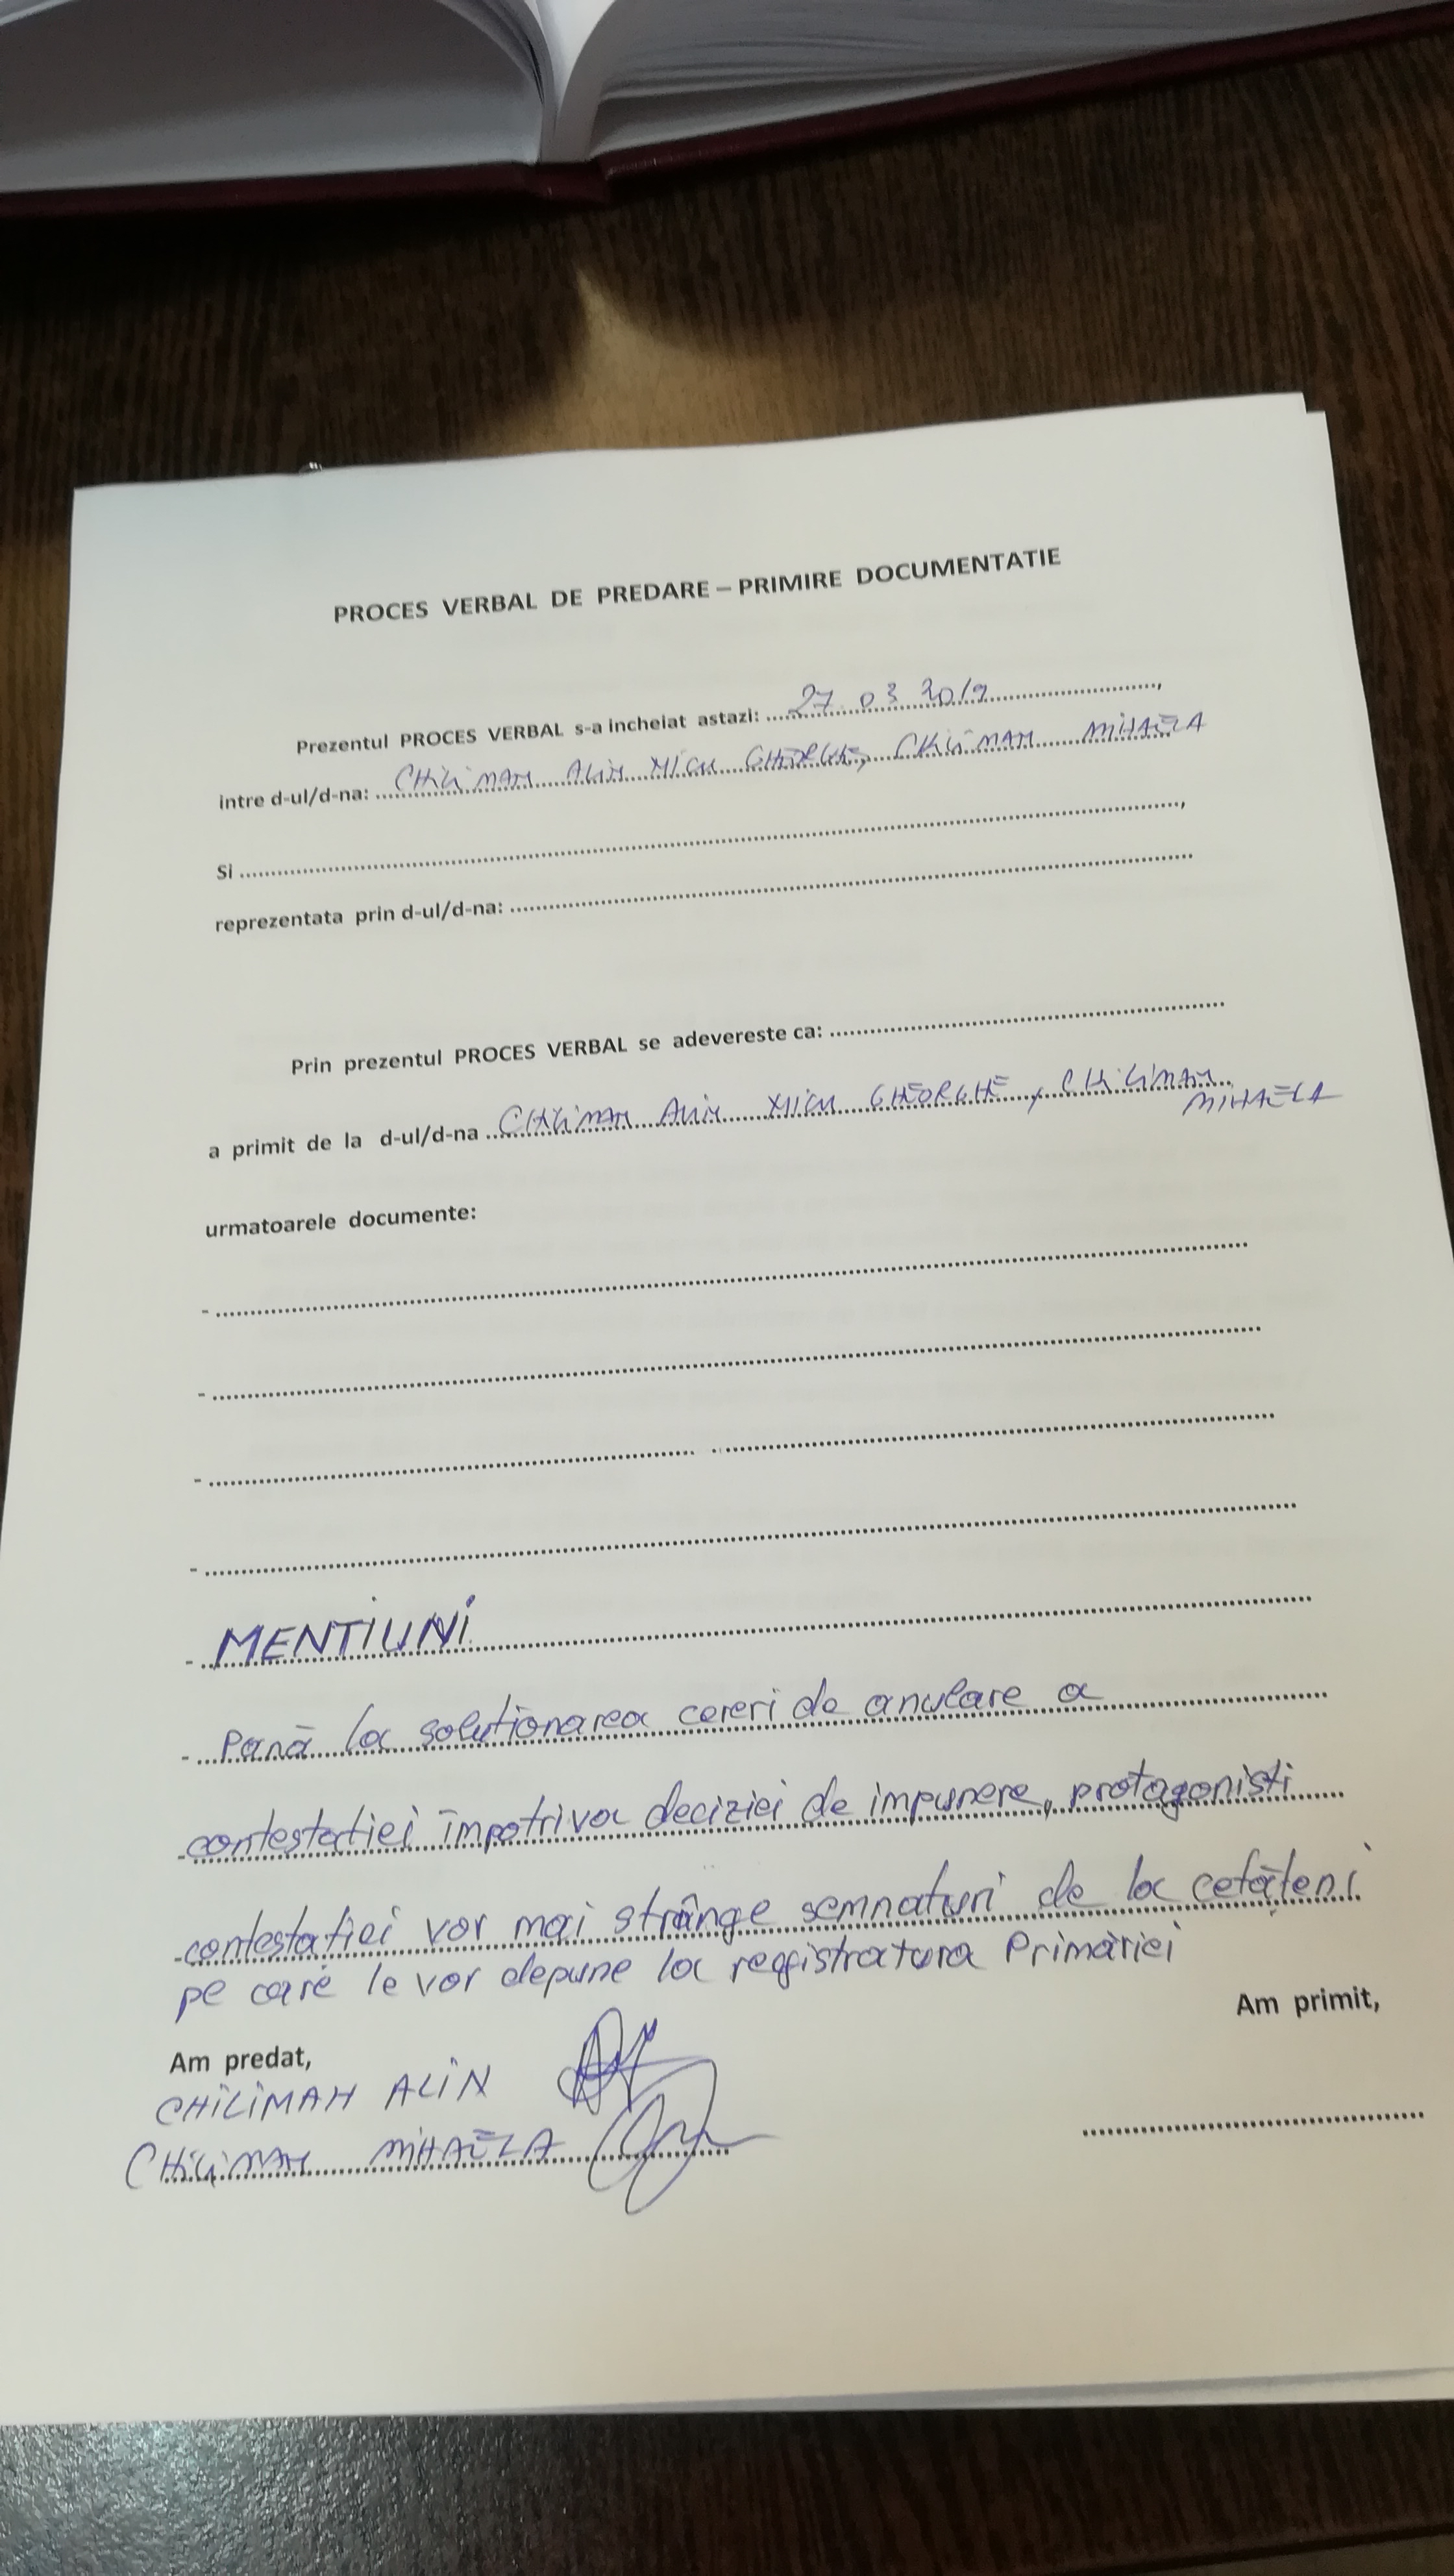 PROCES VERBAL DE PREDARE – PRIMIRE DOCUMENTATIE
Prezentul PROCES VERBAL s-a incheiat astazi: ...27.03 2019...,
intre d-ul/d-na: ...CHiLiMAN ALiN NICU GHEORGHE, CHiLiMAN MiHAELA
Si ...,
reprezentata prin d-ul/d-na: ...
Prin prezentul PROCES VERBAL se adevereste ca: ...
a primit de la d-ul/d-na ...CHiLiMAN ALiN NICU GHEORGHE, CHiLiMAN
MIHAELA
urmatoarele documente:
- ...
- ...
- ...
- ...
- MENTIUNI
- Pană la solutionarea cereri de anulare a
- contestatiei împotriva deciziei de impunere, protagonisti
- contestatiei vor mai strânge semnaturi de la cetățeni
pe care le vor depune la registratura Primăriei
Am primit,
Am predat,
CHiLiMAN ALiN
CHiLiMAN MiHAELA